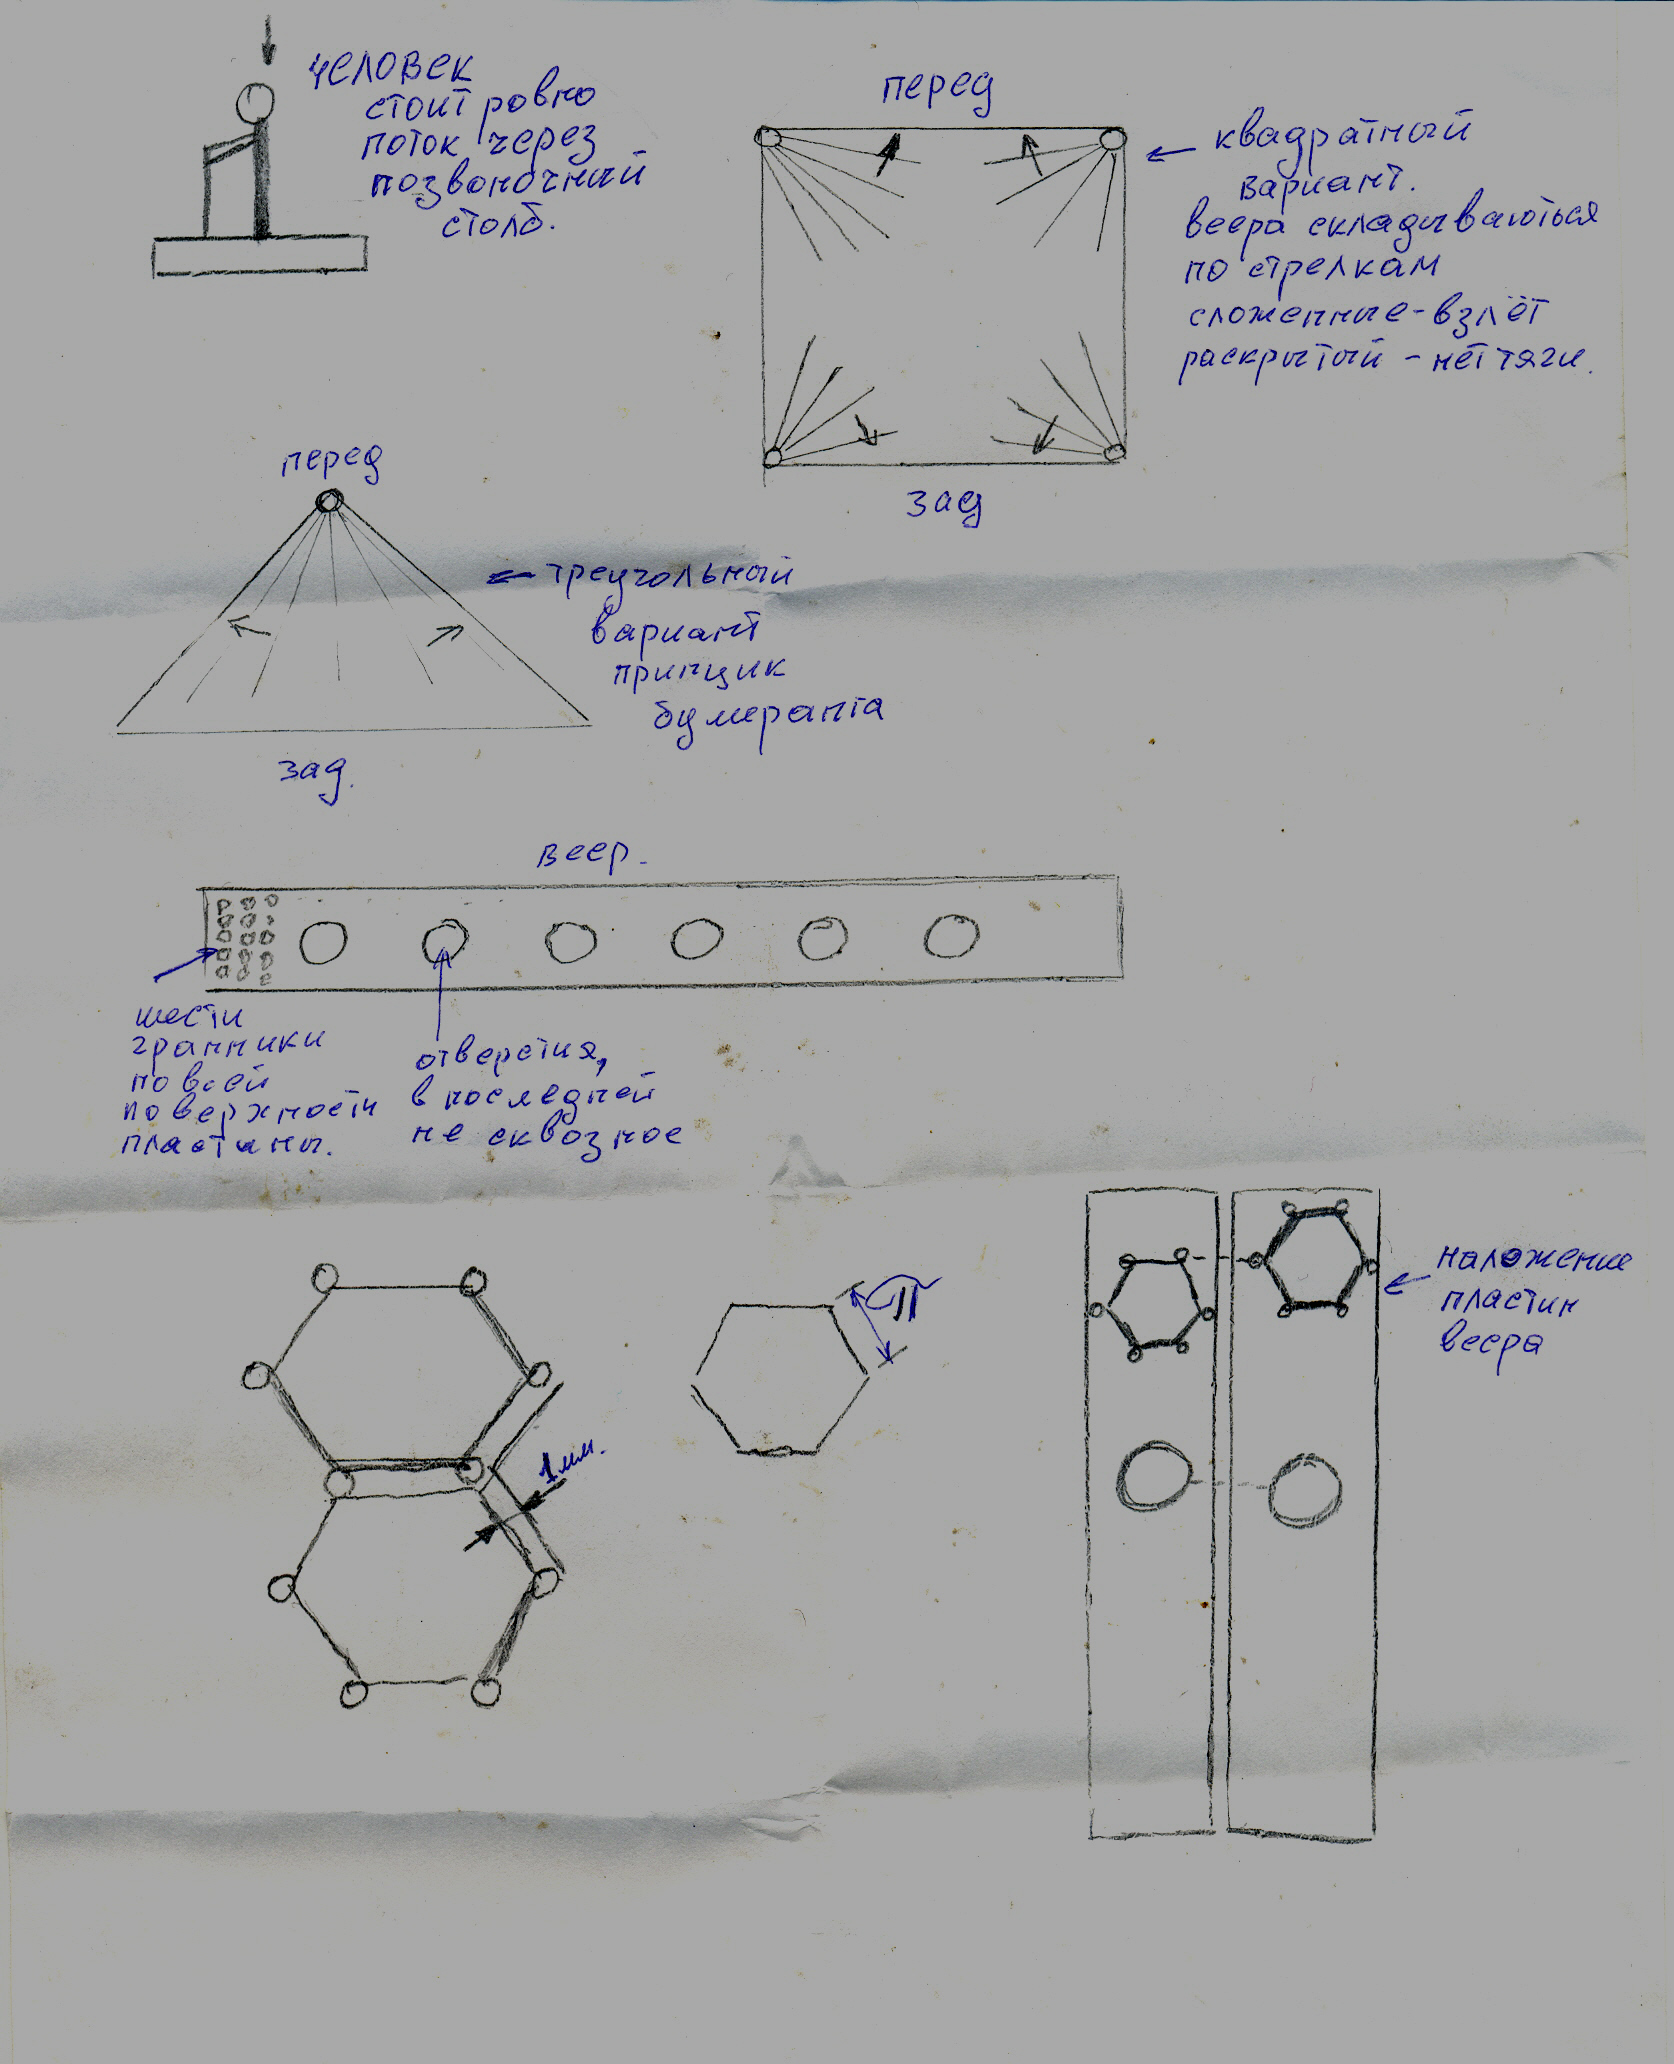 человек
стоит ровно
поток через
позвоночный
столб.
перед
квадратный
вариант.
веера складываються
по стрелкам
сложенные-взлёт
раскрытый - нет тяги.
зад
перед
треугольный
вариант
принцик
бумеранга
зад.
веер.
шести
гранники
по всей
поверхности
пластины.
отверстия,
в последней
не сквозное
π
1мм.
наложение
пластин
веера